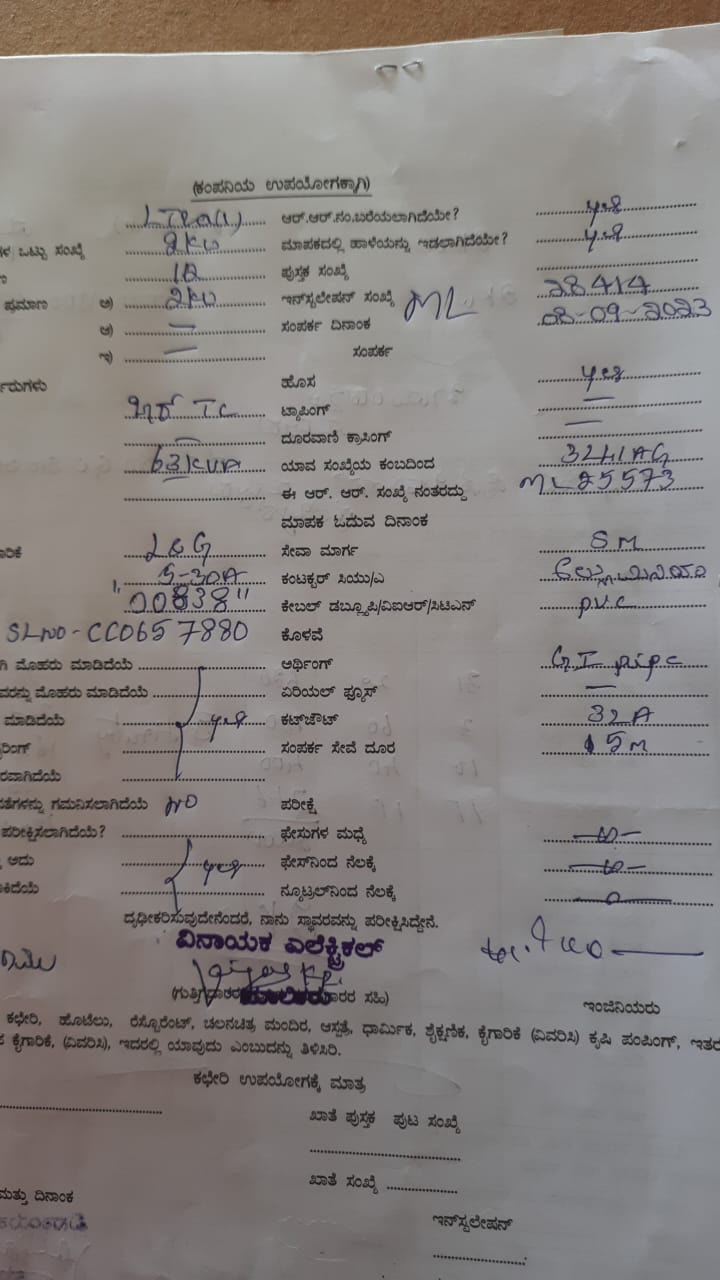 (ಕಂಪನಿಯ ಉಪಯೋಗಕ್ಕಾಗಿ)
ಆರ್.ಆರ್.ನಂ.ಬರೆಯಲಾಗಿದೆಯೇ? yes
ಗಳ ಒಟ್ಟು ಸಂಖ್ಯೆ 2KW ಮಾಪಕದಲ್ಲಿ ಹಾಳೆಯನ್ನು ಇಡಲಾಗಿದೆಯೇ? yes
ಪುಸ್ತಕ ಸಂಖ್ಯೆ
ಪ್ರಮಾಣ ಅ) 2KW ಇನ್‌ಸ್ಟಲೇಷನ್ ಸಂಖ್ಯೆ ML 28414
ಆ) — ಸಂಪರ್ಕ ದಿನಾಂಕ 08-09-2023
ಇ) — ಸಂಪರ್ಕ
ಹೊಸ yes
TC ಟ್ಯಾಪಿಂಗ್ —
— ದೂರವಾಣಿ ಕ್ರಾಸಿಂಗ್ —
63KVA ಯಾವ ಸಂಖ್ಯೆಯ ಕಂಬದಿಂದ
ಈ ಆರ್. ಆರ್. ಸಂಖ್ಯೆ ನಂತರದ್ದು ML25573
ಮಾಪಕ ಓದುವ ದಿನಾಂಕ
L&G ಸೇವಾ ಮಾರ್ಗ SM
5-30A ಕಂಟಕ್ಟರ್ ಸಿಯು/ಎ
"00838" ಕೇಬಲ್ ಡಬ್ಲ್ಯೂಪಿ/ವಿಐಆರ್/ಸಿಟಿಎಸ್ PVC
SLNO-CC0657880 ಕೊಳವೆ
ಗಿ ಮೊಹರು ಮಾಡಿದೆಯೆ ಅರ್ಥಿಂಗ್ GI pipe
ವರನ್ನು ಮೊಹರು ಮಾಡಿದೆಯೆ ಏರಿಯಲ್ ಫ್ಯೂಸ್ —
ಮಾಡಿದೆಯೆ yes ಕಟ್‌ಔಟ್ 32A
ರಿಂಗ್ ಸಂಪರ್ಕ ಸೇವೆ ದೂರ 15M
ರವಾಗಿದೆಯೆ
ತೆಗಳನ್ನು ಗಮನಿಸಲಾಗಿದೆಯೆ NO ಪರೀಕ್ಷೆ
ಪರೀಕ್ಷಿಸಲಾಗಿದೆಯೆ? ಫೇಸುಗಳ ಮಧ್ಯೆ
ಅದು yes ಫೇಸ್‌ನಿಂದ ನೆಲಕ್ಕೆ
ಕಿದೆಯೆ ನ್ಯೂಟ್ರಲ್‌ನಿಂದ ನೆಲಕ್ಕೆ
ದೃಢೀಕರಿಸುವುದೇನೆಂದರೆ, ನಾನು ಸ್ಥಾವರವನ್ನು ಪರೀಕ್ಷಿಸಿದ್ದೇನೆ.
ವಿನಾಯಕ ಎಲೆಕ್ಟ್ರಿಕಲ್
ಮಾಲೀಕರು
ಇಂಜಿನಿಯರು
ಕಛೇರಿ, ಹೊಟೆಲು, ರೆಸ್ಟೋರೆಂಟ್, ಚಲನಚಿತ್ರ ಮಂದಿರ, ಆಸ್ಪತ್ರೆ, ಧಾರ್ಮಿಕ, ಶೈಕ್ಷಣಿಕ, ಕೈಗಾರಿಕೆ (ವಿವರಿಸಿ) ಕೃಷಿ ಪಂಪಿಂಗ್, ಇತರೆ
ಕೈಗಾರಿಕೆ, (ವಿವರಿಸಿ), ಇದರಲ್ಲಿ ಯಾವುದು ಎಂಬುದನ್ನು ತಿಳಿಸಿರಿ.
ಕಛೇರಿ ಉಪಯೋಗಕ್ಕೆ ಮಾತ್ರ
ಖಾತೆ ಪುಸ್ತಕ ಪುಟ ಸಂಖ್ಯೆ
ಖಾತೆ ಸಂಖ್ಯೆ
ಮತ್ತು ದಿನಾಂಕ
ಇನ್‌ಸ್ಟಲೇಷನ್